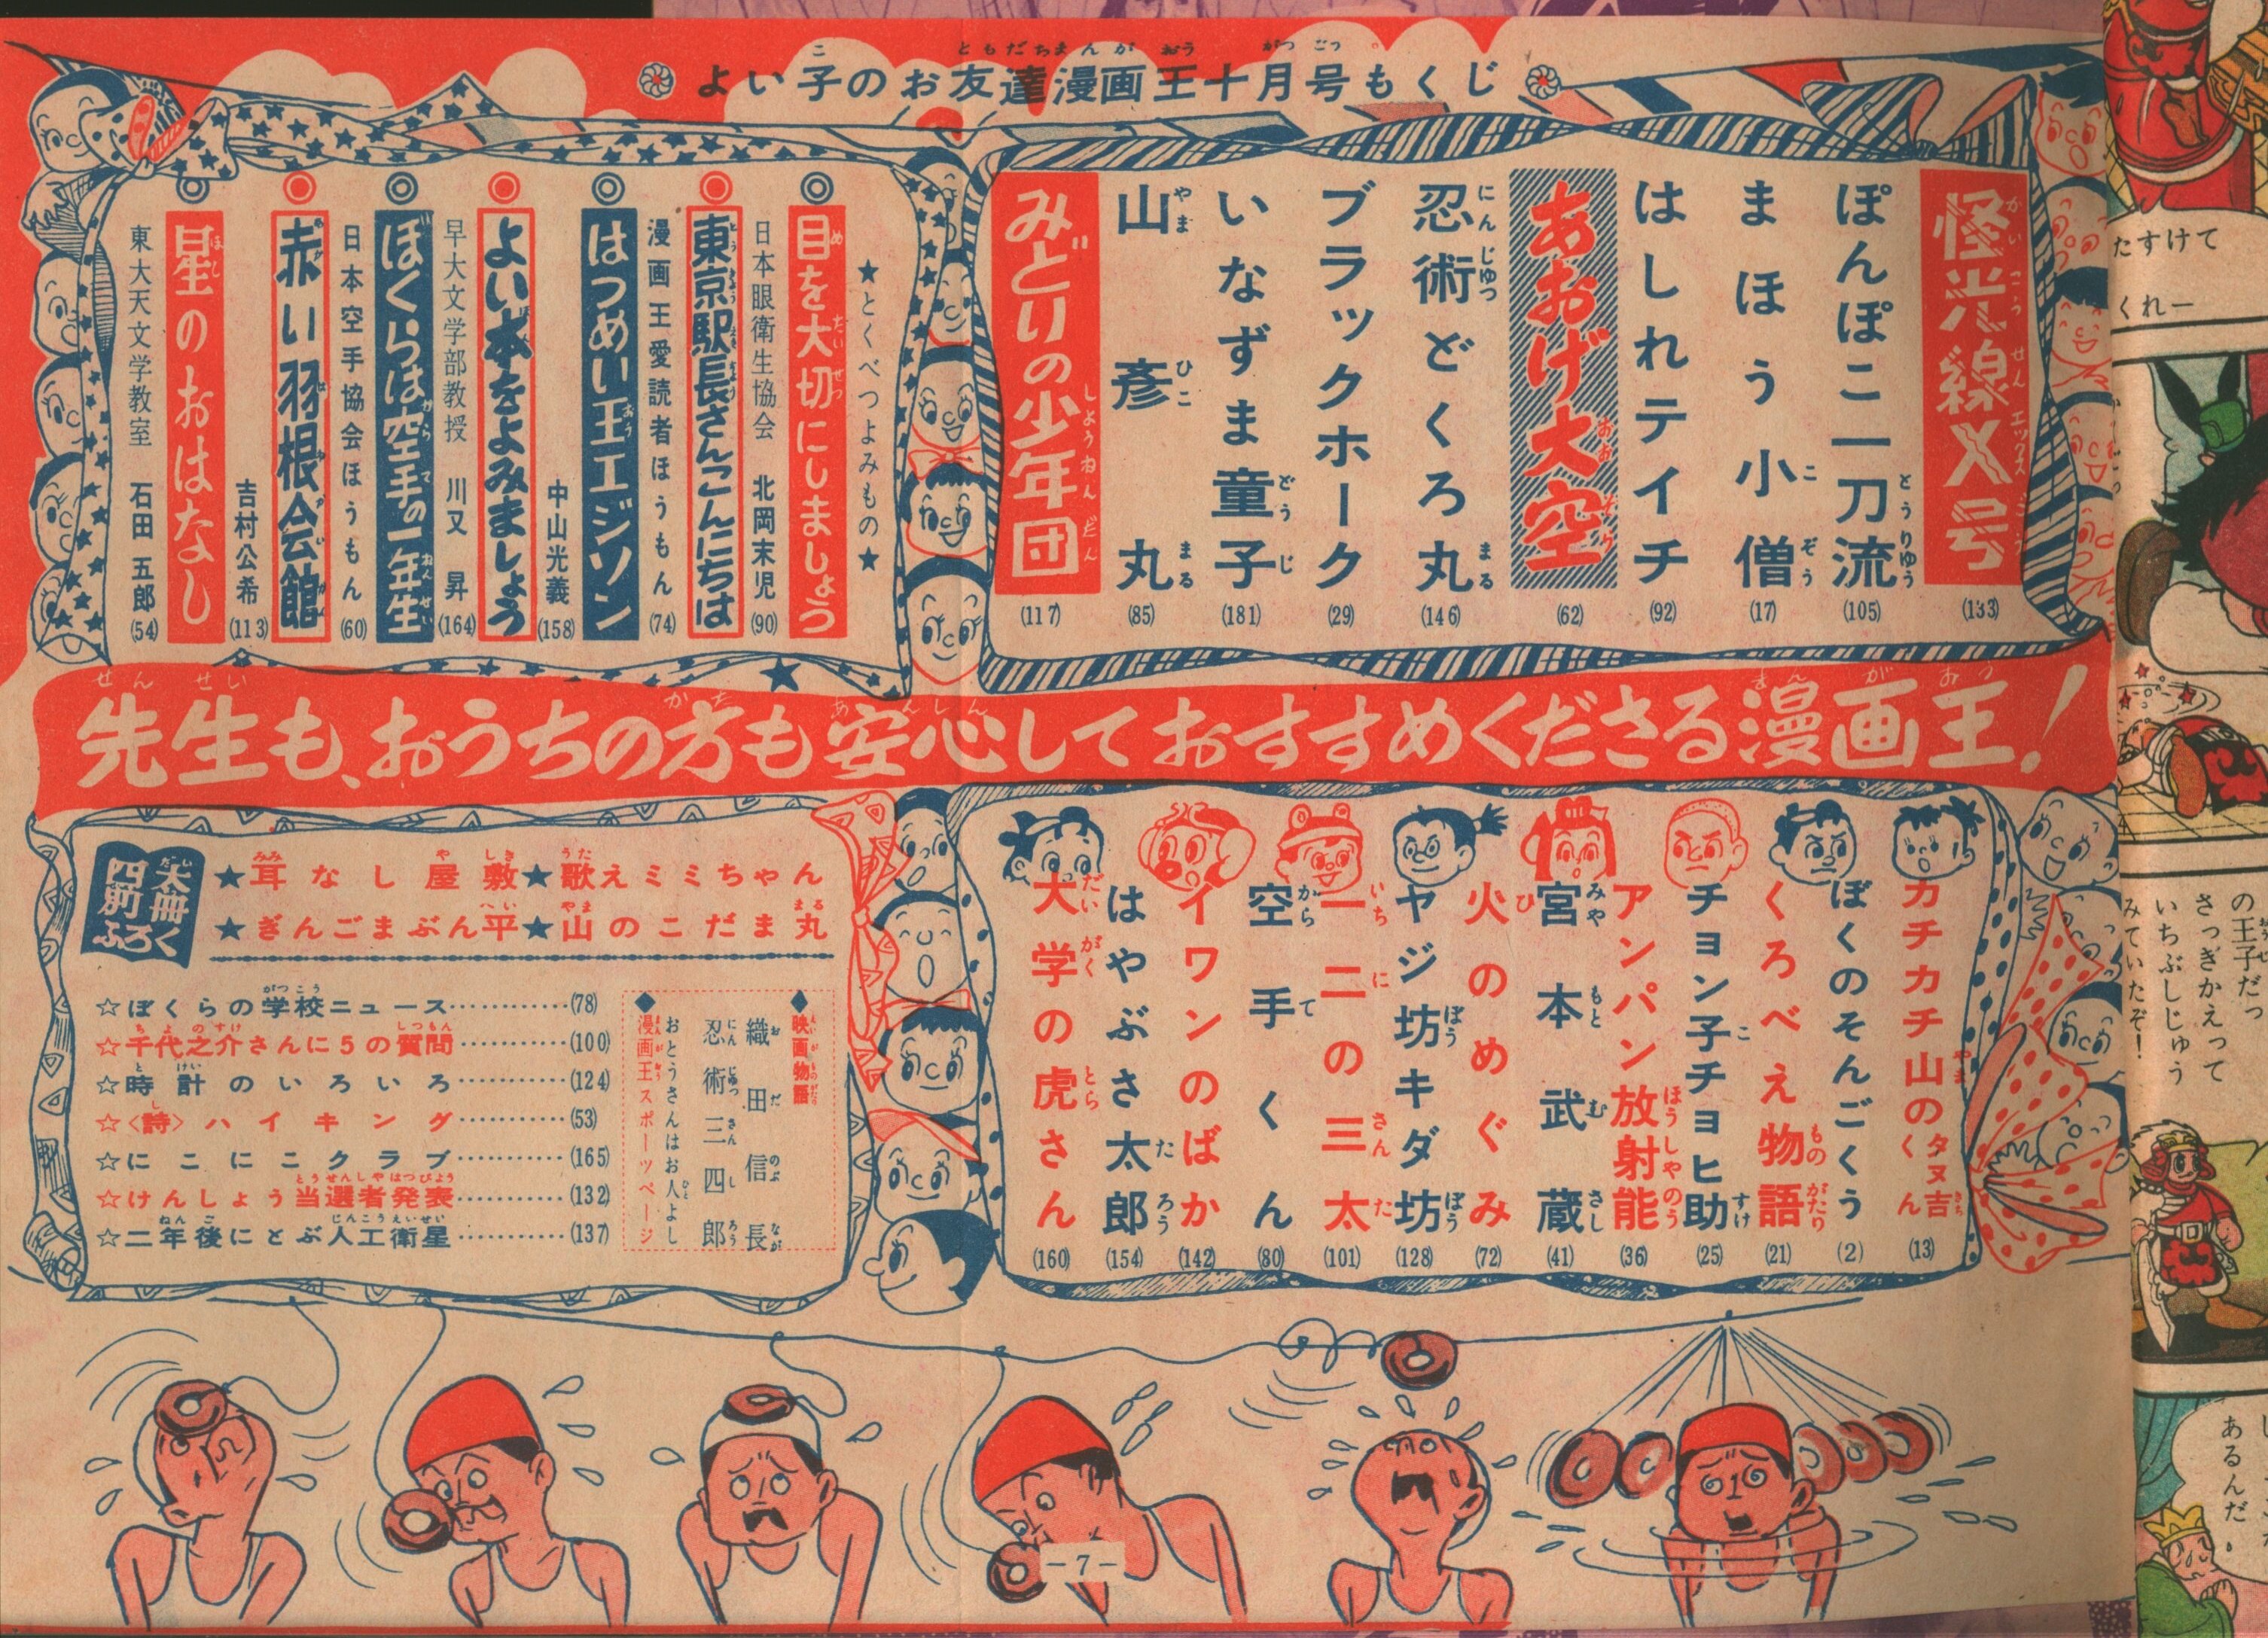 よい子のお友達漫画王十月号もくじ
怪光線X号 (133)
ぽんぽこ一刀流 (105)
まほう小僧 (17)
はしれテイチ (92)
あおげ大空 (62)
忍術どくろ丸 (146)
ブラックホーク (29)
いなずま童子 (181)
山彦丸 (85)
みどりの少年団 (117)
★とくべつよみもの★
目を大切にしましょう
日本眼衛生協会 北岡末児 (90)
東京駅長さんこんにちは
漫画王愛読者ほうもん (74)
はつめい王エジソン
中山光義 (158)
よい本をよみましょう
早大文学部教授 川又昇 (164)
ぼくらは空手の一年生
日本空手協会ほうもん (60)
赤い羽根会館
吉村公希 (113)
星のおはなし
東大天文学教室 石田五郎 (54)
先生も、おうちの方も安心しておすすめくださる漫画王!
カチカチ山のタヌ吉くん (13)
ぼくのそんごくう (2)
くろべえ物語 (21)
チョン子チョヒ助 (25)
アンパン放射能 (36)
宮本武蔵 (41)
火のめぐみ (72)
ヤジ坊キダ坊 (128)
一二の三太 (101)
空手くん (80)
イワンのばか (142)
はやぶさ太郎 (154)
大学の虎さん (160)
四大別冊ふろく
★耳なし屋敷★歌えミミちゃん
★ぎんごまぶん平★山のこだま丸
◆映画物語
織田信長
忍術三四郎
おとうさんはお人よし
◆漫画王スポーツページ
☆ぼくらの学校ニュース…………(78)
☆千代之介さんに5の質問…………(100)
☆時計のいろいろ…………(124)
☆〈詩〉ハイキング…………(53)
☆にこにこクラブ…………(165)
☆けんしょう当選者発表…………(132)
☆二年後にとぶ人工衛星…………(137)
－7－
たすけて
くれー
の王子だっ
さっぎかえって
いちぶしじゅう
みていたぞ!
あるんだ